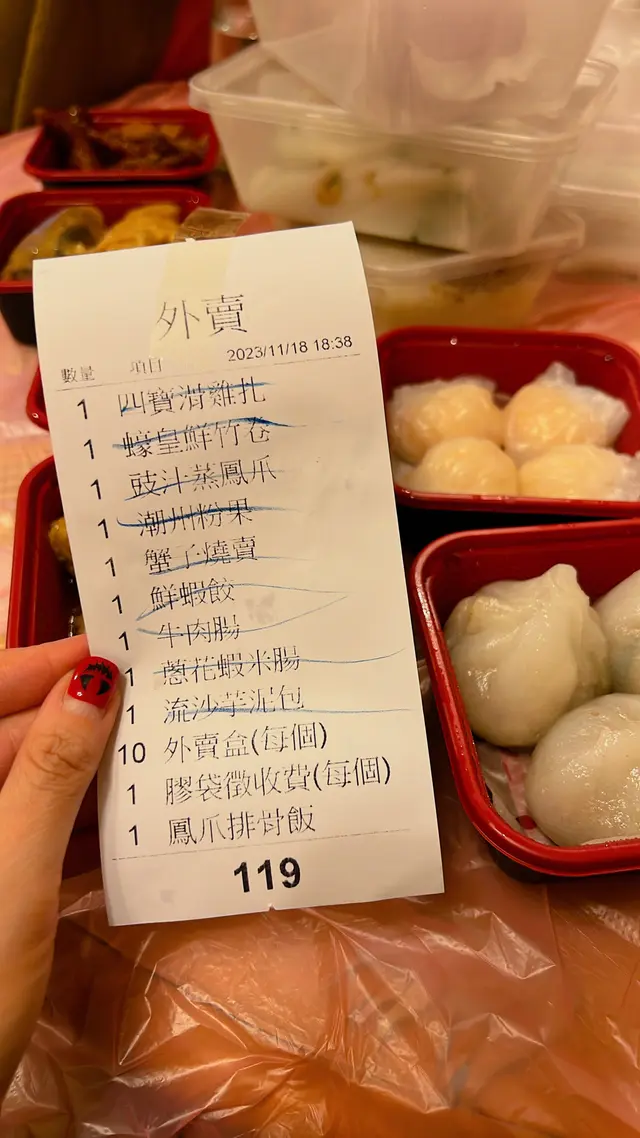 外賣
數量 項目 2023/11/18 18:38
1 四寶滑雞扎
1 蠔皇鮮竹卷
1 豉汁蒸鳳爪
1 潮州粉果
1 蟹子燒賣
1 鮮蝦餃
1 牛肉腸
1 蔥花蝦米腸
1 流沙芋泥包
10 外賣盒(每個)
1 膠袋徵收費(每個)
1 鳳爪排骨飯
119